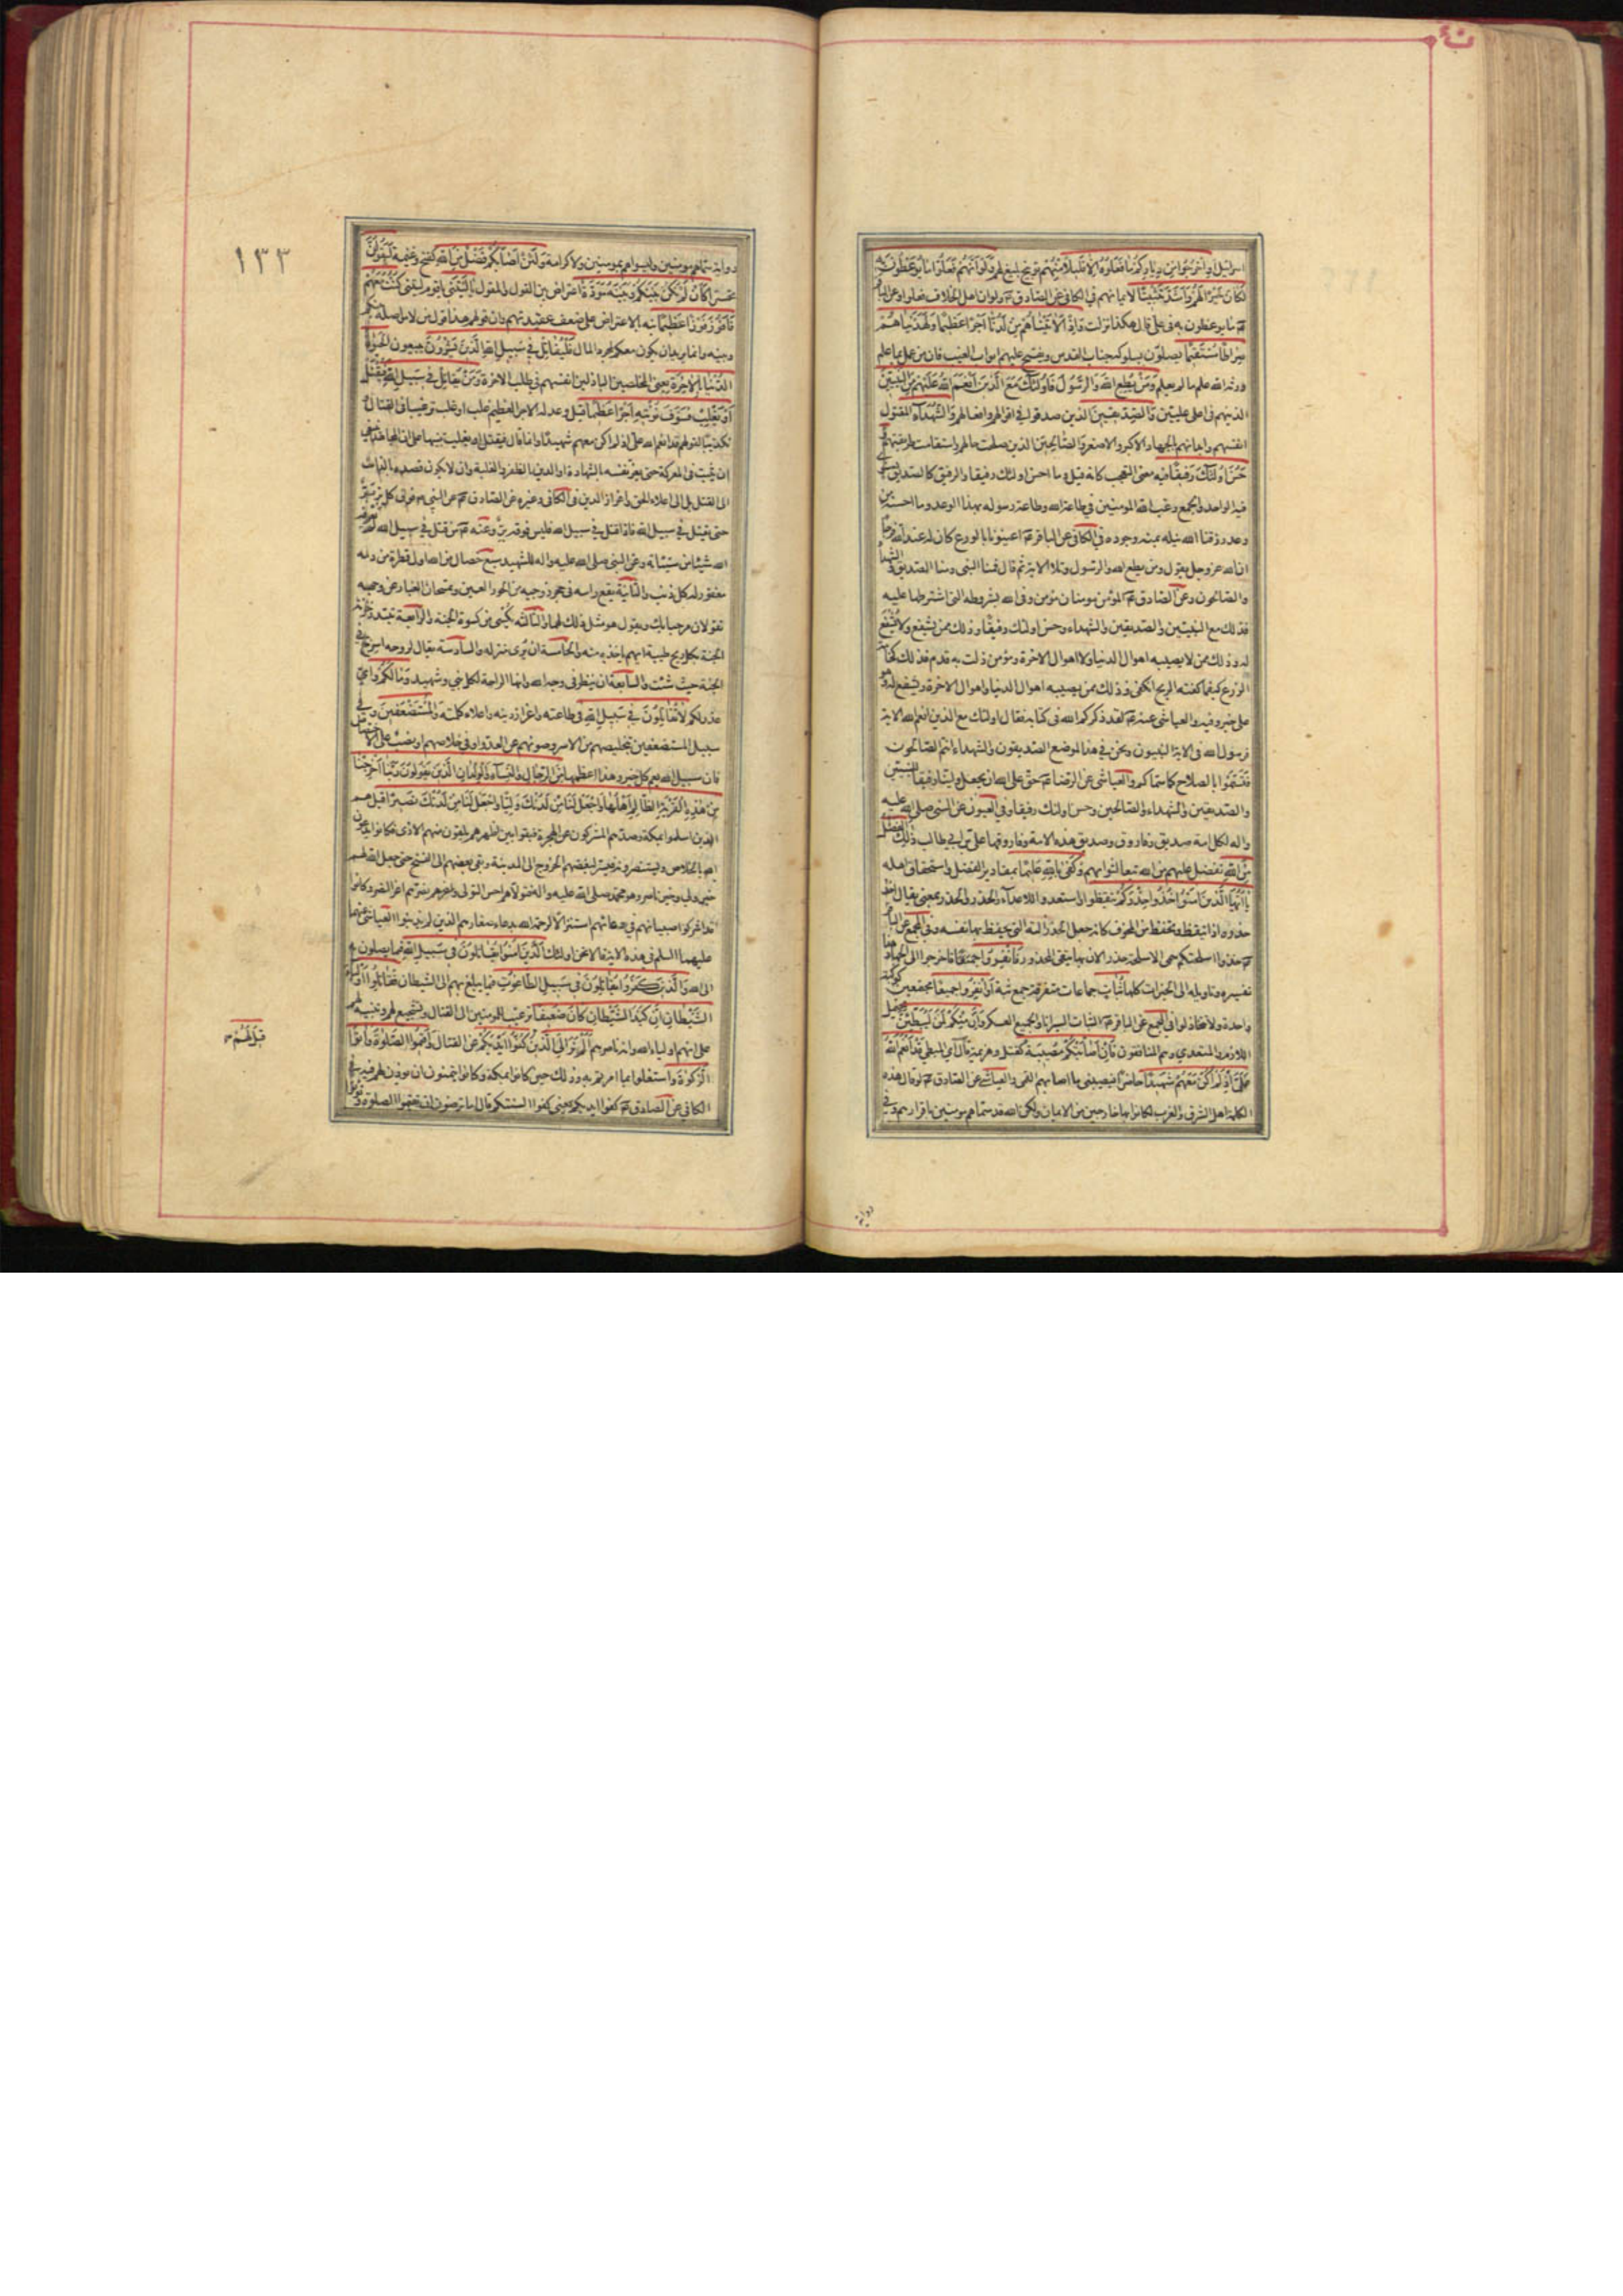 اسرائيل او اخرجوا من دياركم ما فعلوه الا قليل منهم توبيخ بليغ لهم ولو انهم فعلوا ما يوعظون به
لكان خيرا لهم واشد تثبيتا لايمانهم في الكافي عن الصادق ع ولو ان اهل الخلاف فعلوا وعن الباقر
ع ما يوعظون به في علي قال هكذا نزلت واذا لاتيناهم من لدنا اجرا عظيما ولهديناهم
صراطا مستقيما يصلون بسلوكه جناب القدس ويفتح عليهم ابواب الغيب فان من عمل بما علم
ورثه الله علم ما لم يعلم ومن يطع الله والرسول فاولئك مع الذين انعم الله عليهم من النبيين
الذينهم في اعلى عليين والصديقين الذين صدقوا في اقوالهم وافعالهم والشهداء المقتول
انفسهم وابدانهم بالجهاد الاكبر والاصغر والصالحين الذين صلحت حالهم واستقامت طريقتهم و
حسن اولئك رفيقا فيه معنى التعجب كانه قيل وما احسن اولئك رفيقا والرفيق كالصديق يستوي
فيه الواحد والجمع رغب الله المومنين في طاعة الله وطاعة رسوله بهذا الوعد وما احسنه من
وعد رزقنا الله نيله بمنه وجوده في الكافي عن الباقر ع اعينونا بالورع كان له عند الله فرجا
ان الله عز وجل يقول ومن يطع الله والرسول وتلا الاية ثم قال فمنا النبي ومنا الصديق والشهداء
والصالحون وعن الصادق ع المؤمن مومنان مؤمن وفى الله بشروطه التي اشترطها عليه
فذلك مع النبيين والصديقين والشهداء وحسن اولئك رفيقا وذلك ممن يشفع ولا يشفع
له وذلك ممن لا يصيبه اهوال الدنيا ولا اهوال الاخرة ومؤمن زلت به قدم فذلك كخامة
الزرع كيفما كفته الريح انكفى وذلك ممن يصيبه اهوال الدنيا واهوال الاخرة ويشفع له وهو
على خير وفيه والعياشي عنه ع لقد ذكركم الله في كتابه فقال اولئك مع الذين انعم الله الاية
فرسول الله في الاية النبيون ونحن في هذا الموضع الصديقون والشهداء انتم الصالحون
فتسموا بالصلاح كما سماكم والعياشي عن الرضا ع حق على الله ان يجعل ولينا رفيقا للنبيين
والصديقين والشهداء والصالحين وحسن اولئك رفيقا وفي العيون عن النبي صلى الله عليه
واله لكل امة صديق وفاروق وصديق هذه الامة وفاروقها علي بن ابي طالب ذلك الفضل
من الله تفضل عليهم من الله تبعا لثوابهم وكفى بالله عليما بمقادير الفضل واستحقاق اهله
يا ايها الذين امنوا خذوا حذركم تيقظوا واستعدوا للاعداء والحذر والحذر بمعنى يقال اخذ
حذره اذا تيقظ وتحفظ من المخوف كانه جعل الحذر الته التي يحفظ بها نفسه وفي المجمع عن الباقر
ع خذوا اسلحتكم سمى الاسلحة حذرا لان بها يتقى المحذور فانفروا فاخرجوا الى الجهاد هذا
تفسيره وتاويله الى الخيرات كلها ثبات جماعات متفرقة جمع ثبة او انفروا جميعا مجتمعين كوكبة
واحدة ولا تتخاذلوا في المجمع عن الباقر ع الثبات السرايا والجميع العسكر وان منكم لمن ليبطئن يحتمل
اللازم والمتعدي وهم المنافقون فان اصابتكم مصيبة كقتل وهزيمة قال اي المبطئ قد انعم الله
علي اذ لم اكن معهم شهيدا حاضرا فيصيبني ما اصابهم القمي والعياشي عن الصادق ع لو قال هذه
الكلمة اهل الشرق والغرب لكانوا بها خارجين من الايمان ولكن الله قد سماهم مومنين باقرارهم وفي
رواية
١٣٣
رواية سماهم مومنين وليسوا هم بمومنين ولا كرامة ولئن اصابكم فضل من الله كفتح وغنيمة ليقولن
تحسرا كان لم تكن بينكم وبينه مودة اعتراض بين القول والمقول يا ليتني يا قوم ليتني كنت معهم
فافوز فوزا عظيما نبه بالاعتراض على ضعف عقيدتهم وان قولهم هذا قول من لا مواصلة بينكم
وبينه وانما يريد ان يكون معكم لمجرد المال فليقاتل في سبيل الله الذين يشرون يبيعون الحيوة
الدنيا بالاخرة يعني المخلصين الباذلين انفسهم في طلب الاخرة ومن يقاتل في سبيل الله فيقتل
او يغلب فسوف نوتيه اجرا عظيما قيل وعد له الاجر العظيم غلب او غلب ترغيبا في القتال و
تكذيبا لقولهم قد انعم الله علي اذ لم اكن معهم شهيدا وانما قال فيقتل او يغلب تنبيها على ان المجاهد ينبغي
ان يثبت في المعركة حتى يعز نفسه بالشهادة او الدين بالظفر والغلبة وان لا يكون قصده بالذات
الى القتل بل الى اعلاء الحق واعزاز الدين في الكافي وغيره عن الصادق ع عن النبي ص فوق كل بر بر
حتى يقتل في سبيل الله فاذا قتل في سبيل الله فليس فوقه بر وعنه ع من قتل في سبيل الله لم يعرفه
الله شيئا من سيئاته وعن النبي صلى الله عليه واله للشهيد سبع خصال من الله اول قطرة من دمه
مغفور له كل ذنب والثانية يقع راسه في حجر زوجتيه من الحور العين وتمسحان الغبار عن وجهه
تقولان مرحبا بك ويقول هو مثل ذلك لهما والثالثة يكسى من كسوة الجنة والرابعة تبتدره خزنة
الجنة بكل ريح طيبة ايهم ياخذه منه والخامسة ان يرى منزله والسادسة يقال لروحه اسرح في
الجنة حيث شئت والسابعة ان ينظر في وجه الله وانها الراحة لكل نبي وشهيد وما لكم واي
عذر لكم لا تقاتلون في سبيل الله في طاعته واعزاز دينه واعلاء كلمته والمستضعفين وفي
سبيل المستضعفين بتخليصهم من الاسر وصونهم عن العدو او في خلاصهم او نصب على الاختصاص
فان سبيل الله يعم كل خير وهذا اعظمها من الرجال والنساء والولدان الذين يقولون ربنا اخرجنا
من هذه القرية الظالم اهلها واجعل لنا من لدنك وليا واجعل لنا من لدنك نصيرا قيل هم
الذين اسلموا بمكة وصدهم المشركون عن الهجرة فبقوا بين اظهرهم يلقون منهم الاذى فكانوا يدعون
الله بالخلاص ويستنصرونه فيسر لبعضهم الخروج الى المدينة وبقي بعضهم الى الفتح حتى جعل الله لهم
خير ولي وخير ناصر وهو محمد صلى الله عليه واله فتولاهم احسن التولي ونصرهم اعز النصر وكانوا
قد اشركوا صبيانهم في دعائهم استنزالا لرحمة الله بدعاء صغارهم الذين لم يذنبوا العياشي عنهما
عليهما السلم في هذه الاية قالا نحن اولئك الذين امنوا يقاتلون في سبيل الله فيما يصلون به
الى الله والذين كفروا يقاتلون في سبيل الطاغوت فيما يبلغ بهم الى الشيطان فقاتلوا اولياء
الشيطان ان كيد الشيطان كان ضعيفا ترغيب المومنين الى القتال وتشجيع لهم وتنبيه لهم
على انهم اولياء الله وانه ناصرهم الم تر الى الذين كفوا ايديكم عن القتال واقيموا الصلوة واتوا
الزكوة واشتغلوا بما امرتم به وذلك حين كانوا بمكة وكانوا يتمنون ان يوذن لهم فيه في
الكافي عن الصادق ع كفوا ايديكم يعني كفوا السنتكم قال اما ترضون ان تقيموا الصلوة وتؤتوا
قيل لهم